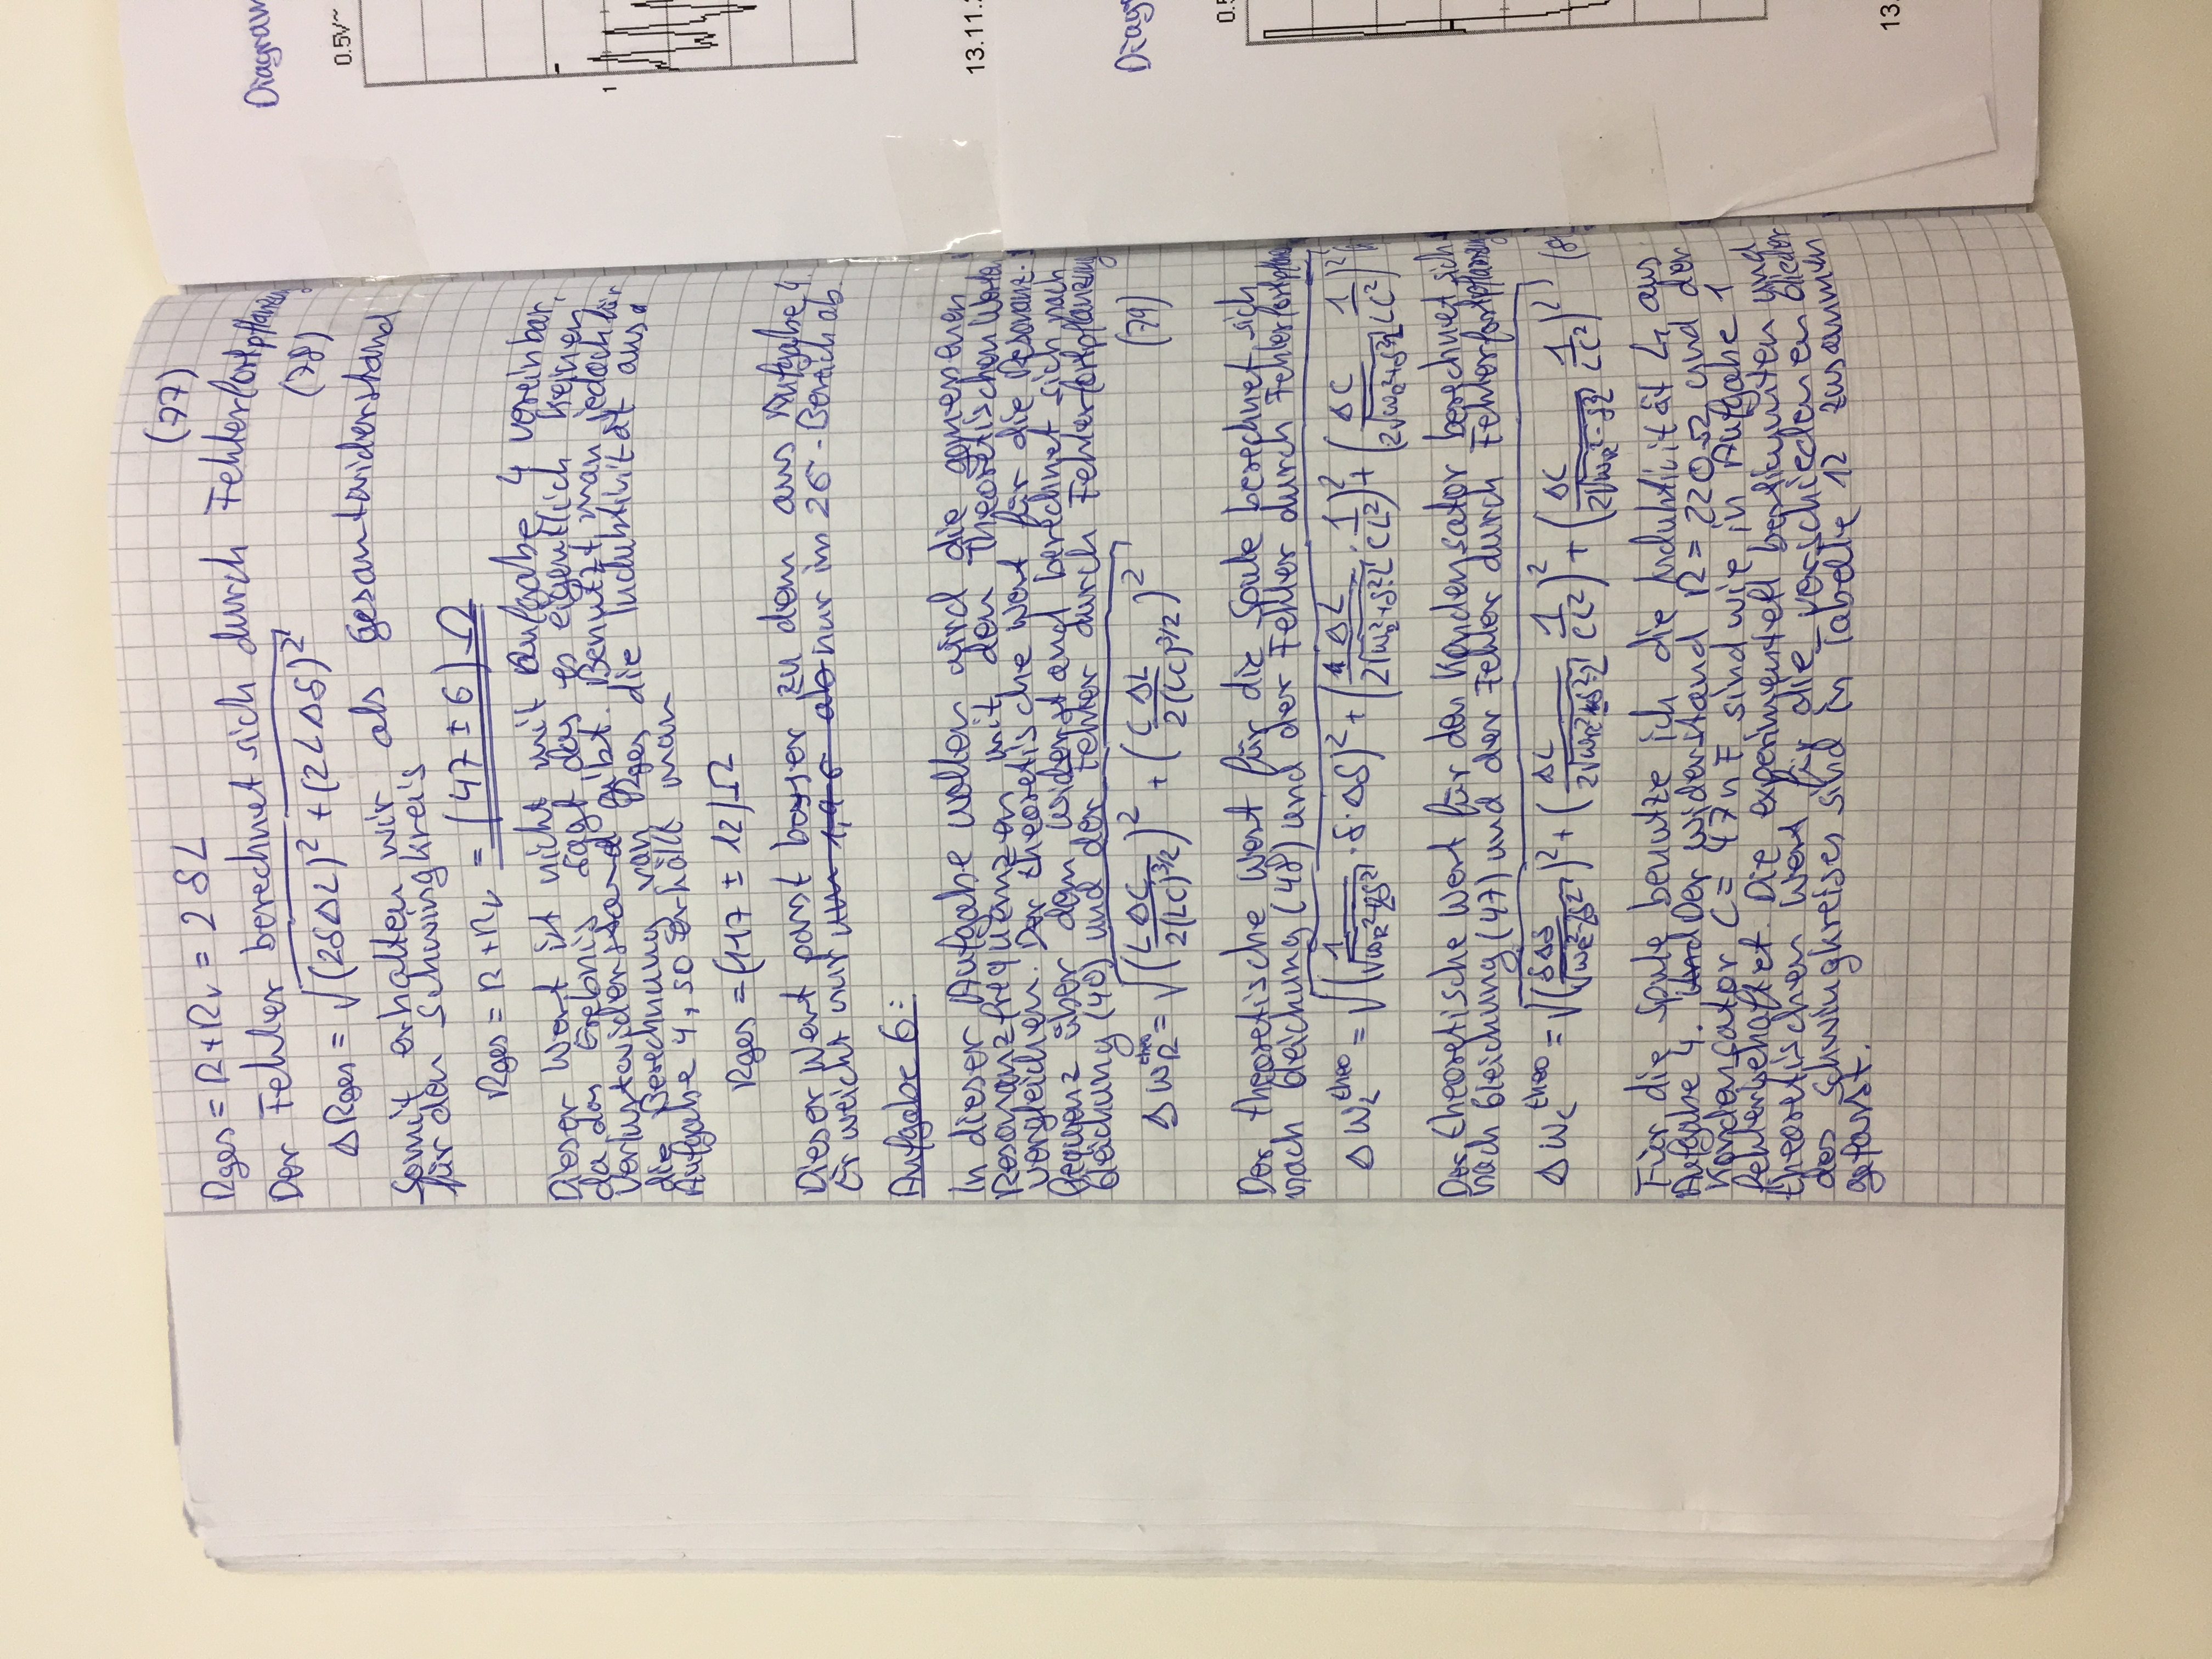 (77)
Rges = R + Rv = 2 δ L
Der Fehler berechnet sich durch Fehlerfortpflanzung
Δ Rges = √((2δΔL)² + (2LΔδ)²) (78)
Somit erhalten wir als Gesamtwiderstand
für den Schwingkreis
Rges = R + Rv = (47 ± 6) Ω
Dieser Wert ist nicht mit Aufgabe 4 vereinbar,
da das Erebnis sagt, das es eigentlich keinen
Verlustwiderstand gibt. Benutzt man jedoch für
die Berechnung von Rges die Induktivität aus
Aufgabe 4, so erhällt man
Rges = (117 ± 12) Ω
Dieser Wert passt besser zu dem aus Aufgabe 4.
Er weicht nur um 1,9 σ ab nur im 2σ - Bereich ab.
Aufgabe 6:
In dieser Aufgabe wollen wird die gemessenen
Resonanzfrequenzen mit den Theoretischen Werten
vergleichen. Der theoretische Wert für die Resonanz-
frequenz über dem Widerstand berechnet sich nach
Gleichung (40) und der Fehler durch Fehlerfortpflanzung
Δ ω_R^theo = √((L ΔC / 2(LC)^3/2)² + (C ΔL / 2(LC)^3/2)²) (79)
Der theoretische Wert für die Spule berechnet sich
nach Gleichung (48) und der Fehler durch
Δ ω_L^theo = √((1 / √(ω_R²+2δ²) · δ · Δδ)² + (ΔL / 2√(ω_R²+δ²2) · 1/CL²)² + (ΔC / 2√(ω_R²+δ²2) 1/LC²)²)
Der theoretische Wert für den Kondensator berechnet sich
nach Gleichung (47) und der Fehler durch Fehlerfortpflanzung
Δ ω_C^theo = √((δΔδ / √(ω_R²-2δ²))² + (ΔL / 2√(ω_R²-δ²2) 1/CL²)² + (ΔC / 2√(ω_R²-δ²2) 1/LC²)²) (8
Für die Spule benutze ich die Induktivität L, aus
Aufgabe 4. Und Der Widerstand R = 220 Ω und der
Kondensator C = 47nF sind wie in Aufgabe 1
fehlerbehaftet. Die experimentell bestimmten und
theoretischen Wert für die verschiedenen Glieder
des Schwingkreises sind in Tabelle 12 zusammen
gefasst.
Diagram
0.5V~
1
13.11.
Diag
0.5
13.